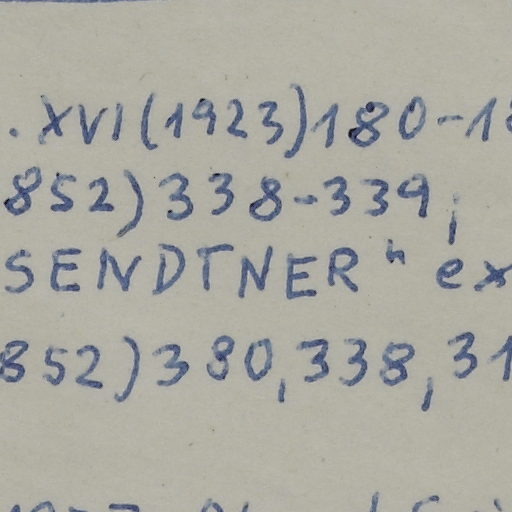 . XVI (1923) 180-18
852) 338-339;
SENDTNER" ex
852) 380, 338, 31